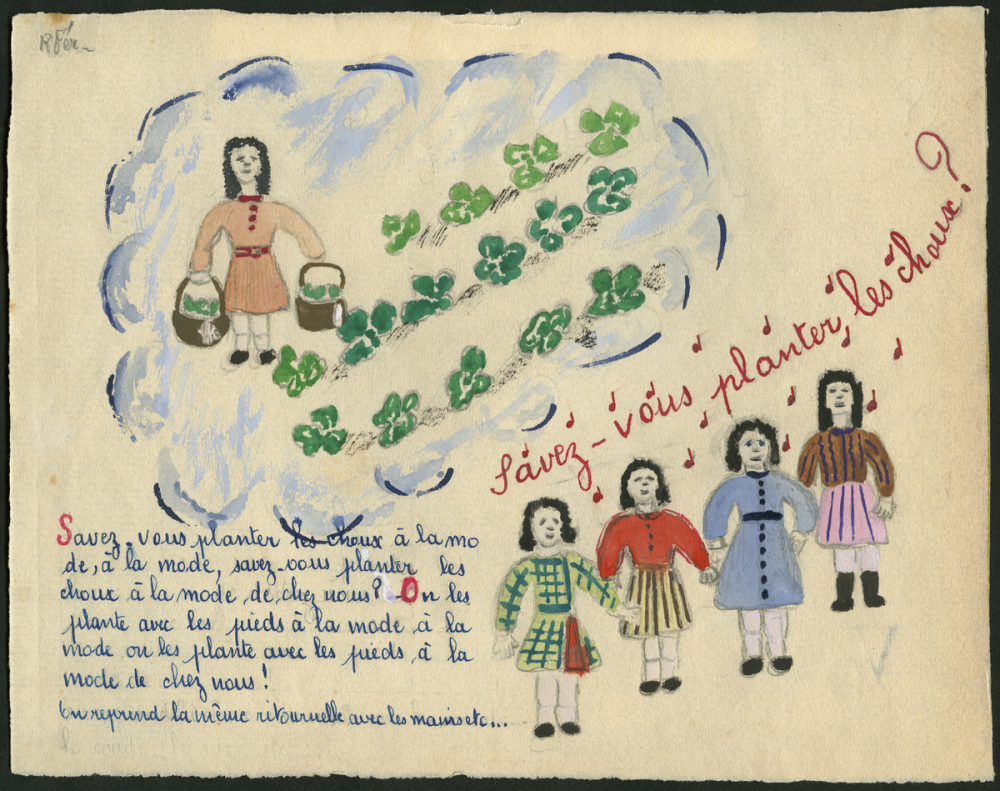 Savez-vous planter les choux?
Savez-vous planter les choux à la mo
de, à la mode, savez-vous planter les
choux à la mode de chez nous? On les
plante avec les pieds à la mode à la
mode on les plante avec les pieds à la
mode de chez nous!
On reprend la même ritournelle avec les mains etc...